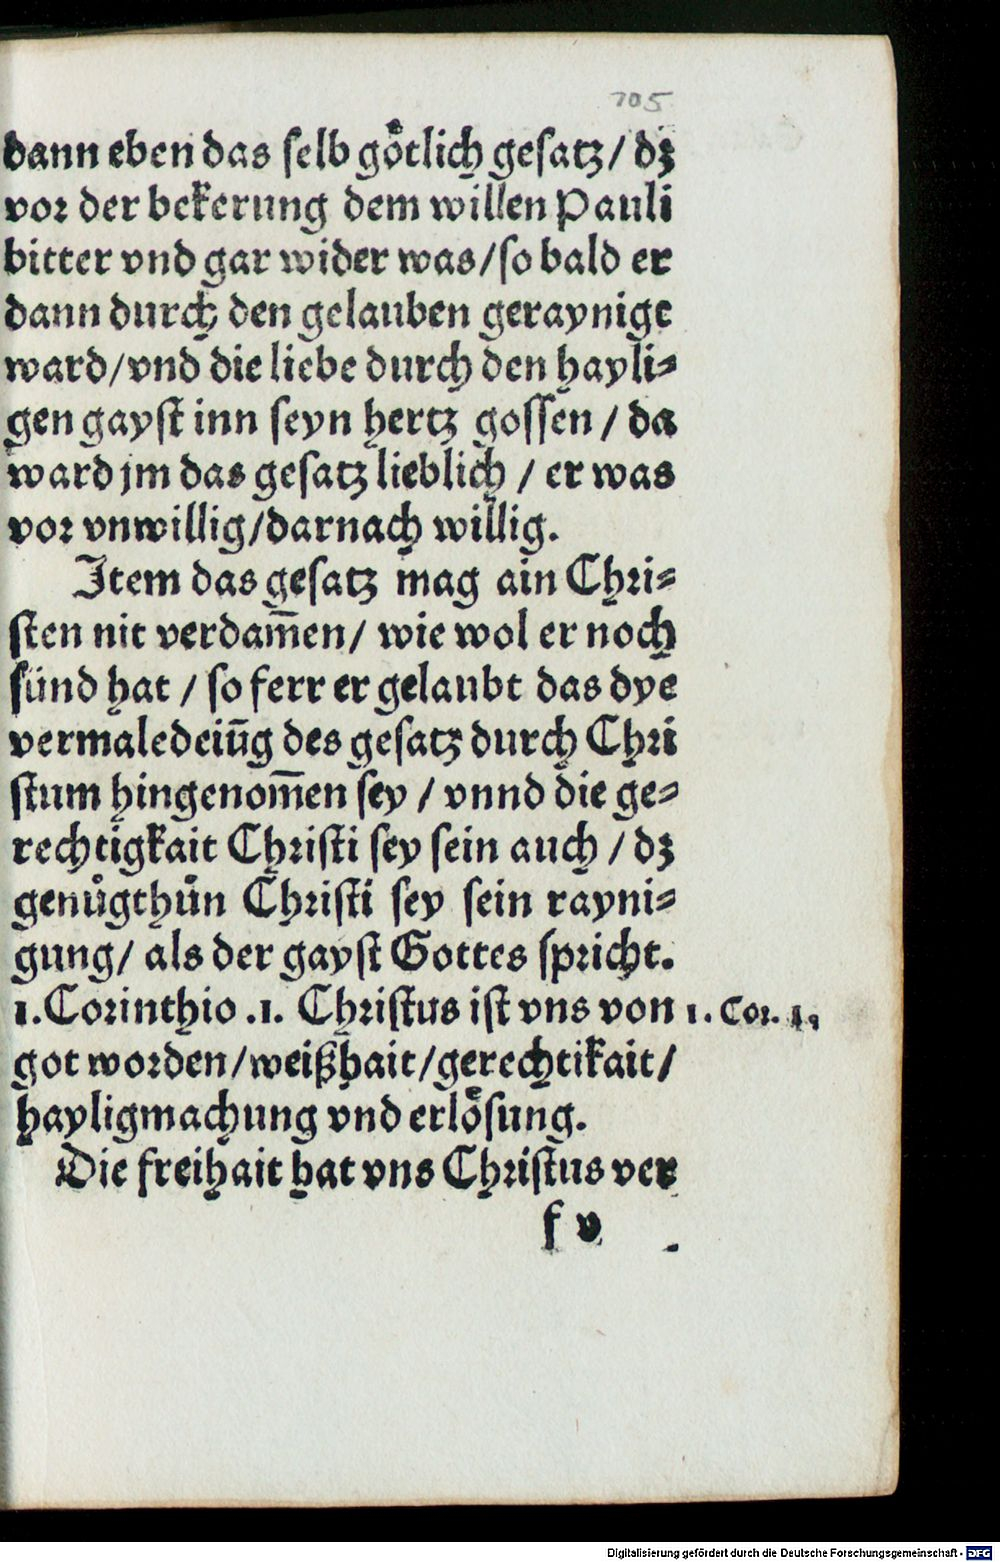 705
dann eben das ſelb goͤtlich geſatz / dz
vor der bekerung dem willen Pauli
bitter vnd gar wider was / ſo bald er
dann durch den gelauben geraynigt
ward / vnd die liebe durch den hayli⸗
gen gayſt inn ſeyn hertz goſſen / da
ward jm das geſatz lieblich / er was
vor vnwillig / darnach willig.
Item das geſatz mag ain Chri⸗
ſten nit verdam̄en / wie wol er noch
ſünd hat / ſo ferr er gelaubt das dye
vermaledeiūg des geſatz durch Chri
ſtum hingenom̄en ſey / vnnd die ge⸗
rechtigkait Chriſti ſey ſein auch / dz
genuͦgthuͦn Chriſti ſey ſein rayni⸗
gung / als der gayſt Gottes ſpricht.
1. Corinthio .1. Chriſtus iſt vns von
1. Cor. 1.
got worden / weißhait / gerechtikait /
hayligmachung vnd erloͤſung.
Die freihait hat vns Chriſtus ver
f v
Digitalisierung gefördert durch die Deutsche Forschungsgemeinschaft - DFG